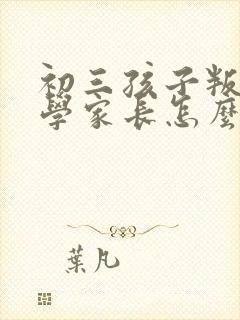 初三孩子叛
學家長怎麼
葉凡